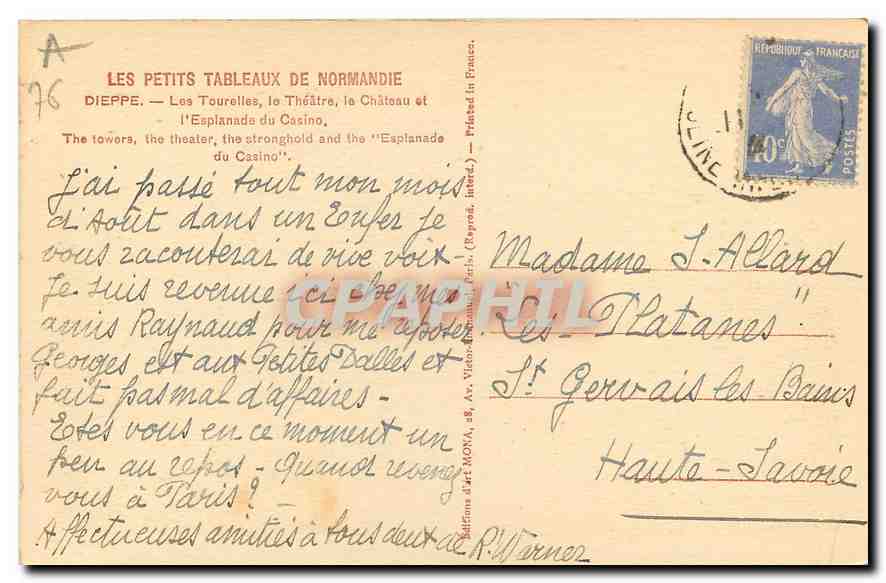 A
76
LES PETITS TABLEAUX DE NORMANDIE
DIEPPE. — Les Tourelles, le Théâtre, le Château et
l'Esplanade du Casino.
The towers, the theater, the stronghold and the "Esplanade
du Casino".
J'ai passé tout mon mois
d'Août dans un Enfer je
vous raconterai de vive voix -
Je suis revenue ici chez mes
amis Raynaud pour me reposer.
Georges est aux Petites Dalles et
fait pas mal d'affaires -
Etes vous en ce moment un
peu au repos - Quand revenez
vous à Paris ?
Affectueuses amitiés à tous deux de R. Warner
Editions d'art MONA, 28, Av. Victor-Emmanuel, Paris. (Reprod. interd.) — Printed in France.
CPAPHIL
RÉPUBLIQUE FRANÇAISE
40c
POSTES
2
11
SEINE INFRE
Madame J. Allard
"Les Platanes"
St Gervais les Bains
Haute-Savoie